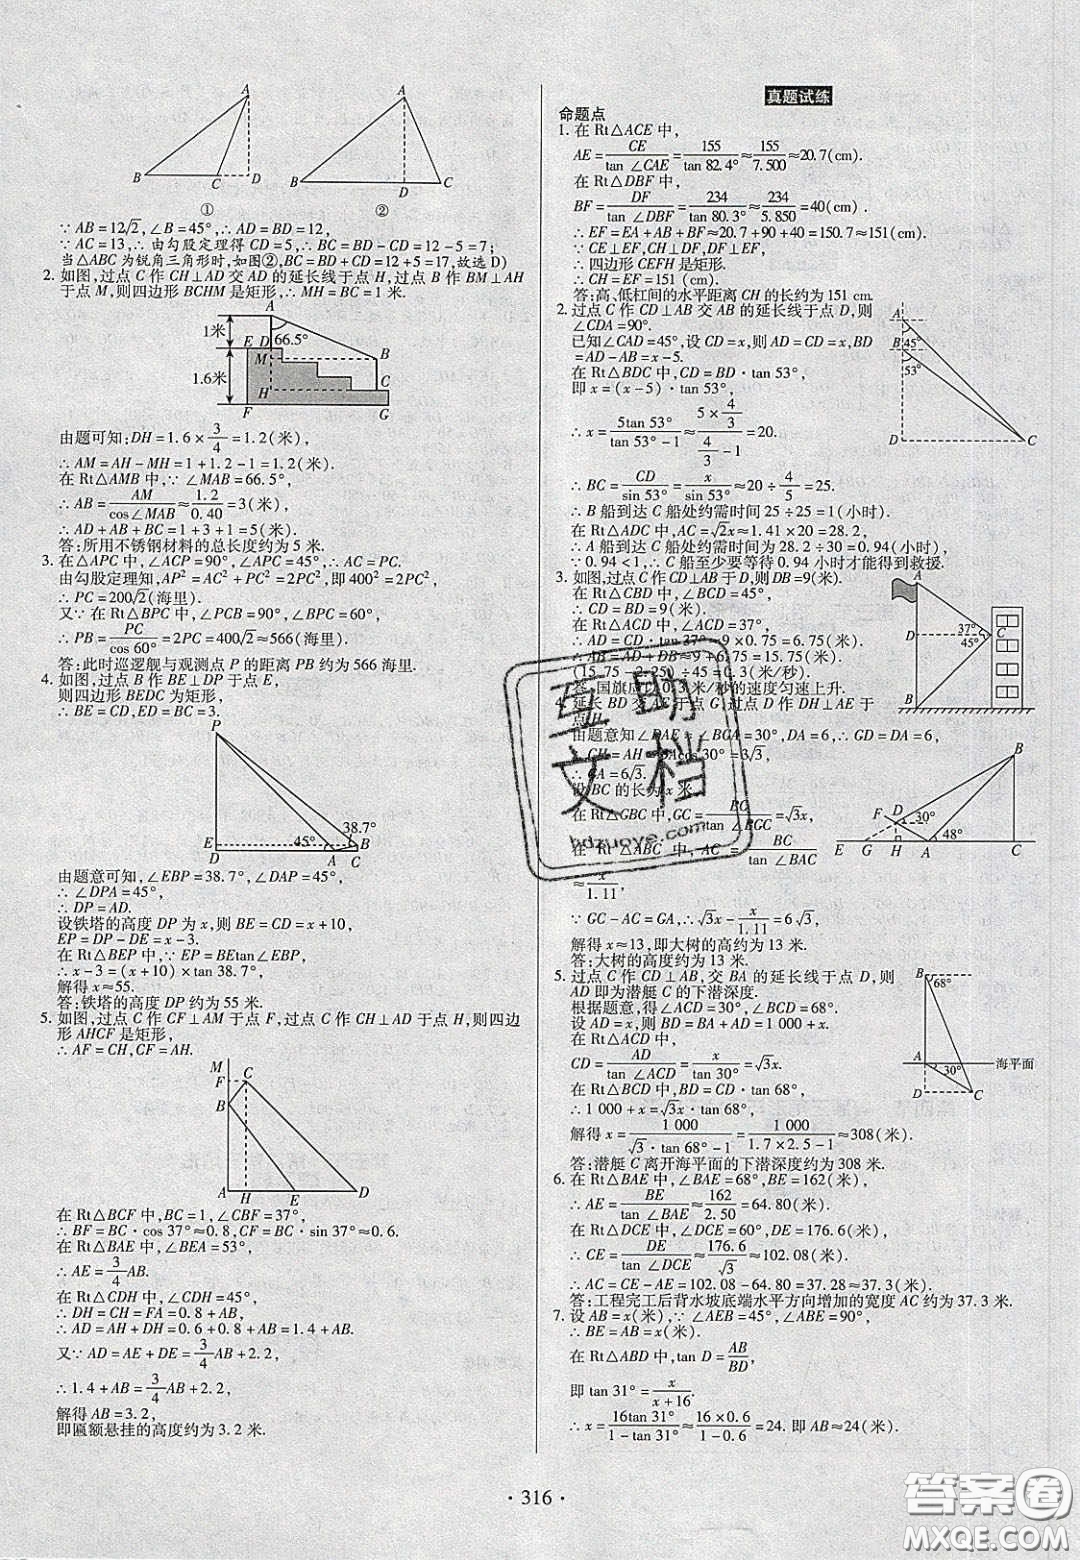 A
B
C
D
①
A
B
D
C
②
∵ AB=12√2,∠B=45°,∴ AD=BD=12,
∵ AC=13,∴ 由勾股定理得 CD=5,∴ BC=BD-CD=12-5=7;
当△ABC 为锐角三角形时,如图②,BC=BD+CD=12+5=17,故选 D)
2. 如图,过点 C 作 CH⊥AD 交 AD 的延长线于点 H,过点 B 作 BM⊥AH
于点 M,则四边形 BCHM 是矩形,∴ MH=BC=1 米.
A
1米
66.5°
E D
M
B
1.6米
H
C
F
G
由题可知:DH=1.6×3/4=1.2(米),
∴ AM=AH-MH=1+1.2-1=1.2(米).
在 Rt△AMB 中,∵ ∠MAB=66.5°,
∴ AB=AM/cos∠MAB≈1.2/0.40=3(米),
∴ AD+AB+BC=1+3+1=5(米).
答:所用不锈钢材料的总长度约为 5 米.
3. 在△APC 中,∠ACP=90°,∠APC=45°,∴ AC=PC.
由勾股定理知,AP²=AC²+PC²=2PC²,即 400²=2PC²,
∴ PC=200√2(海里).
又∵ 在 Rt△BPC 中,∠PCB=90°,∠BPC=60°,
∴ PB=PC/cos60°=2PC=400√2≈566(海里).
答:此时巡逻舰与观测点 P 的距离 PB 约为 566 海里.
4. 如图,过点 B 作 BE⊥DP 于点 E,
则四边形 BEDC 为矩形,
∴ BE=CD,ED=BC=3.
P
38.7°
E
45°
B
D
A C
由题意可知,∠EBP=38.7°,∠DAP=45°,
∴ ∠DPA=45°,
∴ DP=AD.
设铁塔的高度 DP 为 x,则 BE=CD=x+10,
EP=DP-DE=x-3.
在 Rt△BEP 中,∵ EP=BEtan∠EBP,
∴ x-3=(x+10)×tan 38.7°,
解得 x≈55.
答:铁塔的高度 DP 约为 55 米.
5. 如图,过点 C 作 CF⊥AM 于点 F,过点 C 作 CH⊥AD 于点 H,则四边
形 AHCF 是矩形,
∴ AF=CH,CF=AH.
M
F
C
B
A
H
E
D
在 Rt△BCF 中,BC=1,∠CBF=37°,
∴ BF=BC·cos 37°≈0.8,CF=BC·sin 37°≈0.6.
在 Rt△BAE 中,∠BEA=53°,
∴ AE=3/4AB.
在 Rt△CDH 中,∠CDH=45°,
∴ DH=CH=FA=0.8+AB,
∴ AD=AH+DH=0.6+0.8+AB=1.4+AB.
又∵ AD=AE+DE=3/4AB+2.2,
∴ 1.4+AB=3/4AB+2.2,
解得 AB=3.2,
即匾额悬挂的高度约为 3.2 米.
真题试练
命题点
1. 在 Rt△ACE 中,
AE=CE/tan∠CAE=155/tan 82.4°≈155/7.500≈20.7(cm).
在 Rt△DBF 中,
BF=DF/tan∠DBF=234/tan 80.3°≈234/5.850=40(cm).
∴ EF=EA+AB+BF≈20.7+90+40=150.7≈151(cm).
∵ CE⊥EF,CH⊥DF,DF⊥EF,
∴ 四边形 CEFH 是矩形.
∴ CH=EF=151(cm).
答:高、低杠间的水平距离 CH 的长约为 151 cm.
2. 过点 C 作 CD⊥AB 交 AB 的延长线于点 D,则
∠CDA=90°.
已知∠CAD=45°,设 CD=x,则 AD=CD=x,BD
=AD-AB=x-5.
在 Rt△BDC 中,CD=BD·tan 53°,
即 x=(x-5)·tan 53°,
∴ x=5tan 53°/(tan 53°-1)≈(5×4/3)/(4/3-1)=20.
∴ BC=CD/sin 53°=x/sin 53°≈20÷4/5=25.
∴ B 船到达 C 船处约需时间 25÷25=1(小时).
在 Rt△ADC 中,AC=√2x≈1.41×20=28.2,
∴ A 船到达 C 船处约需时间为 28.2÷30=0.94(小时).
∵ 0.94<1,∴ C 船至少要等待 0.94 小时才能得到救援.
A
45°
B
53°
D
C
3. 如图,过点 C 作 CD⊥AB 于 D,则 DB=9(米).
在 Rt△CBD 中,∠BCD=45°,
∴ CD=BD=9(米).
在 Rt△ACD 中,∠ACD=37°,
∴ AD=CD·tan 37°≈9×0.75=6.75(米).
∴ AB=AD+DB≈9+6.75=15.75(米).
(15.75-2.25)÷45=0.3(米/秒).
答:国旗应以 0.3 米/秒的速度匀速上升.
A
37°
D
C
45°
B
4. 延长 BD 交 AE 于点 G,过点 D 作 DH⊥AE 于
点 H.
由题意知∠DAE=∠BGA=30°,DA=6,∴ GD=DA=6,
∴ GH=AH=DAcos 30°=3√3,
∴ GA=6√3.
设 BC 的长为 x 米,
在 Rt△GBC 中,GC=BC/tan∠BGC=√3x,
在 Rt△ABC 中,AC=BC/tan∠BAC
≈x/1.11,
∵ GC-AC=GA,∴ √3x-x/1.11=6√3,
解得 x≈13,即大树的高约为 13 米.
答:大树的高度约为 13 米.
B
F
D
30°
48°
E
G
H
A
C
5. 过点 C 作 CD⊥AB,交 BA 的延长线于点 D,则
AD 即为潜艇 C 的下潜深度.
根据题意,得∠ACD=30°,∠BCD=68°.
设 AD=x,则 BD=BA+AD=1 000+x.
在 Rt△ACD 中,
CD=AD/tan∠ACD=x/tan 30°=√3x.
在 Rt△BCD 中,BD=CD·tan 68°,
∴ 1 000+x=√3x·tan 68°,
解得 x=1 000/(√3·tan 68°-1)≈1 000/(1.7×2.5-1)≈308(米).
答:潜艇 C 离开海平面的下潜深度约为 308 米.
B
68°
A
海平面
30°
D
C
6. 在 Rt△BAE 中,∠BAE=68°,BE=162(米),
∴ AE=BE/tan∠BAE≈162/2.50=64.80(米),
在 Rt△DCE 中,∠DCE=60°,DE=176.6(米),
∴ CE=DE/tan∠DCE≈176.6/√3≈102.08(米),
∴ AC=CE-AE=102.08-64.80=37.28≈37.3(米).
答:工程完工后背水坡底端水平方向增加的宽度 AC 约为 37.3 米.
7. 设 AB=x(米),∵ ∠AEB=45°,∠ABE=90°,
∴ BE=AB=x(米).
在 Rt△ABD 中,tan D=AB/BD,
即 tan 31°=x/(x+16).
∴ x=16tan 31°/(1-tan 31°)≈16×0.6/(1-0.6)=24. 即 AB≈24(米).
· 316 ·
互助文档
bdzuoye.com
答案圈
MXQE.COM